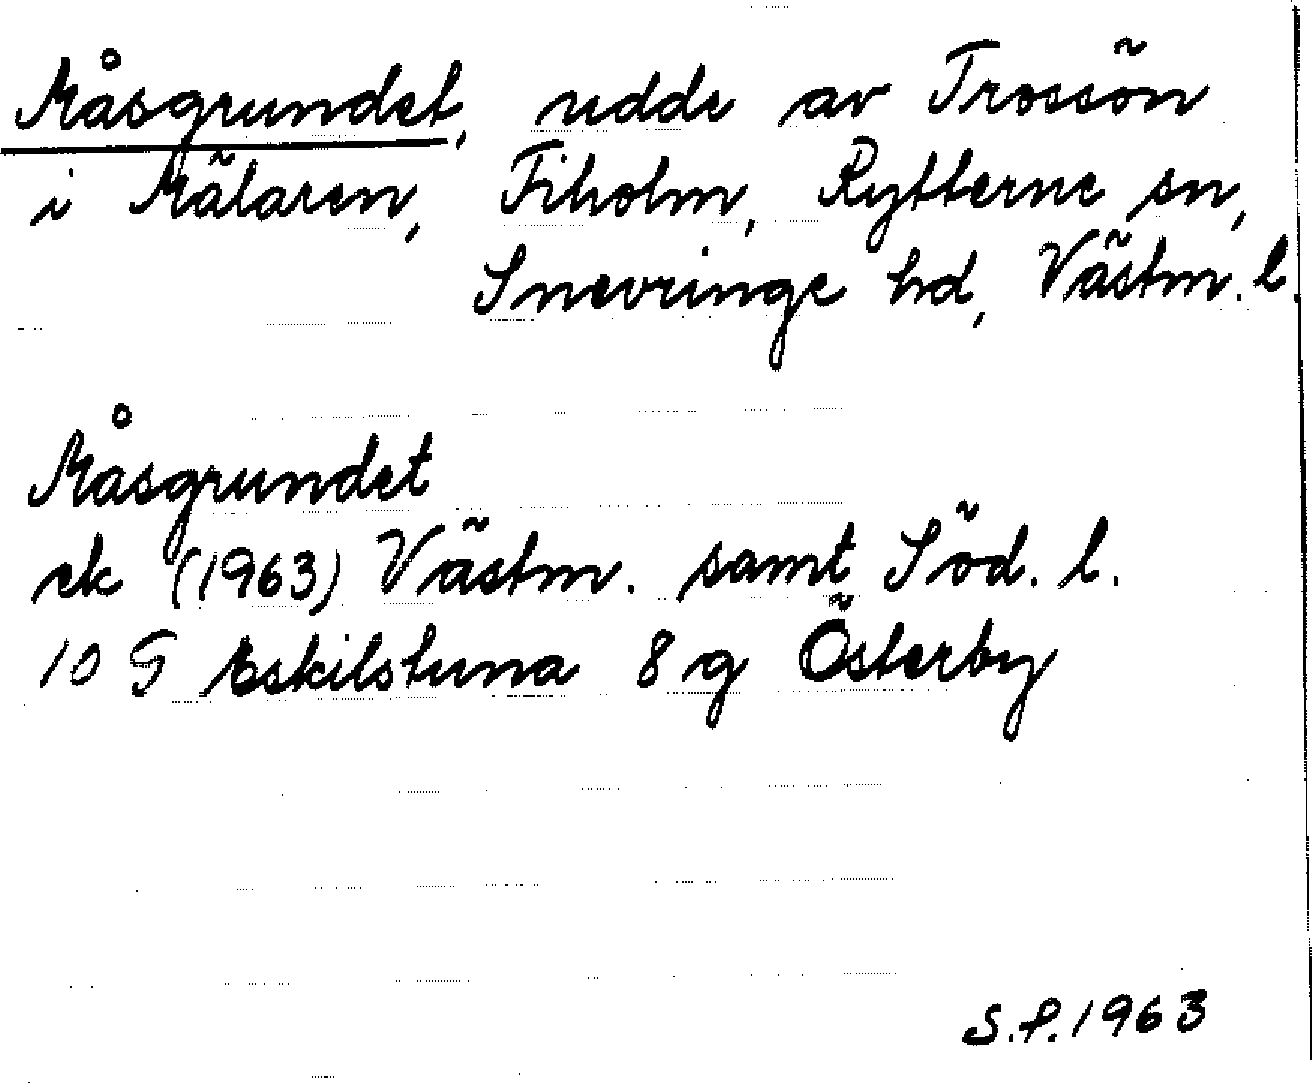 Måsgrundet, udde av Trossön
i Mälaren, Fiholm, Rytterne sn,
Snevringe hd, Västm. l.
Måsgrundet
ek (1963) Västm. samt Söd. l.
10 G Eskilstuna 8 g Österby
S.P. 1963